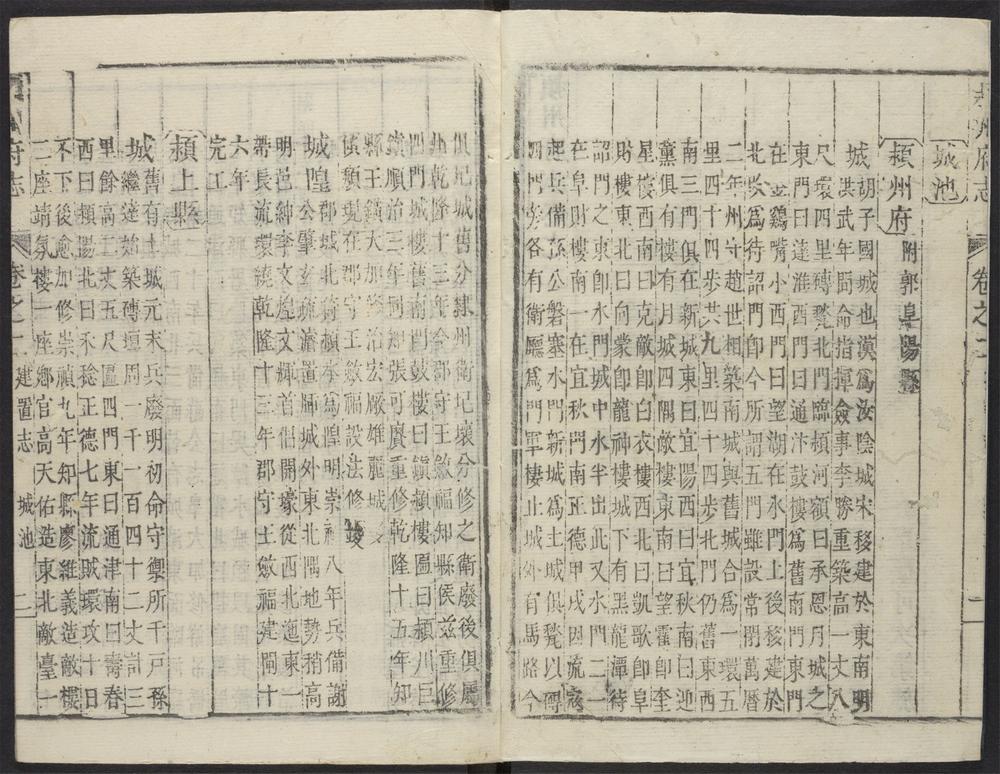 州府志 卷之二
城池
潁州府 附郭阜陽縣
城 胡子國城也漢爲汝陰城宋移建於東南明
洪武年間命指揮僉事李勝重築高一丈八
尺環四里磚甃北門臨頓河額曰承恩月城之
東門曰達淮西門曰通汴鼓樓爲舊南門東門
在金鷄嘴小西門曰望湖在水門上後移建於
北改爲待詔門卽今所謂五門雖設常閉萬曆
二年州守趙世相築南城與舊城合爲一環五
里四十四步共九里四十四步北門仍舊東西
南三門俱在新城東曰宜陽西曰宜秋南曰迎
薰俱有樓有月城四隅敵樓東南曰望霍卽奎
星樓西南曰克敵卽白衣樓西北曰凱歌卽阜
財樓東北曰向蒙卽龍神樓城下有黑龍潭待
詔門之東卽水門城中水半出此又水門二一
在阜財樓南一在宜秋門南正德甲戌因流寇
起兵備孫公磐塞水門新城爲土城俱甃以磚
四門旁各有衛廳爲門軍棲止城外有馬路今
俱圮城舊分隸州衛圮壞分修之衛廢後俱屬
州乾隆十三年令郡守王斂福知縣侯玆重修
四門城樓舊南門鼓樓曰鎭潁樓匾曰潁川巨
鎭順治三年同知張可賡重修乾隆十五年知
縣王錤大加修治宏厰雄麗城
傾頽現在郡守王斂福設法修
城隍 公肇玄疏濬置牐城外東北隅地勢稍高
明邑紳李文煌文輝首倡開壕從西北迤東一
帶長流環繞乾隆十三年郡守王斂福建閘十
六年
完工
潁上縣
城 舊有土城元末兵廢明初命守禦所千戶孫
繼達始築磚垣周一千一百四十二丈計三
里餘高二丈五尺區四門東曰通津南曰壽春
西曰潁陽北曰禾稔正德七年流賊環攻十日
不下後愈加修崇禎九年知縣廖維義造敵樓
二座靖氛樓一座鄉官高天佑造東北敵臺一
府志 卷之二 建置志 城池 二